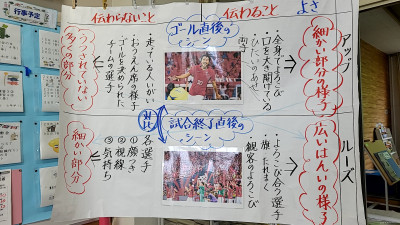 よさ
伝わること
伝わらないこと
アップ
細かい部分の様子
ゴール直後のシーン
・全身でよろこび
・口を大きく開けている
・ひたいのあせ
両手
・走っている人がいい
・おうえん席の様子
・ゴールを決められた
チームの選手
うつされていない
多くの部分
ルーズ
広いはんいの様子
試合終了直後の
シーン
・よろこび合う選手
・旗、たれまく
観客のよろこび
対比
各選手
①顔つき
②視線
③気持ち
細かい部分
行事予定